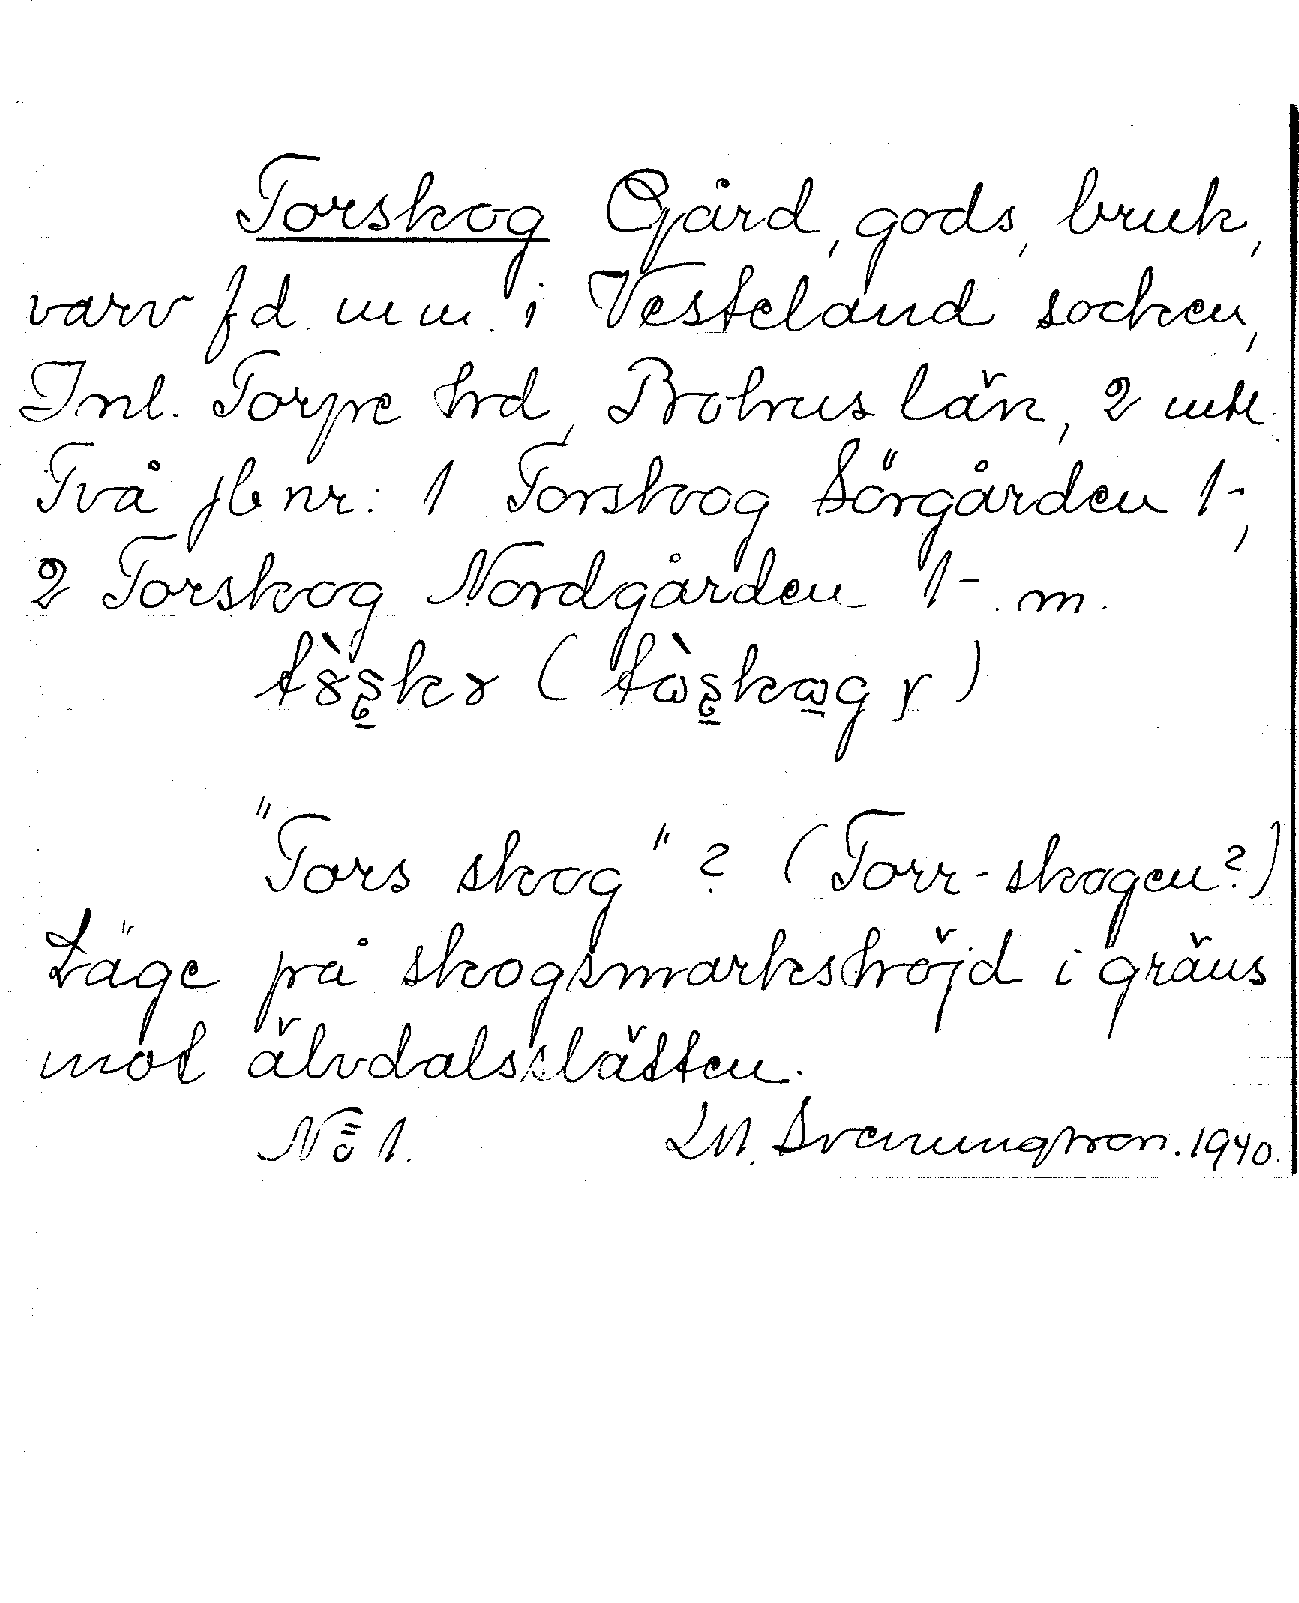 Torskog Gård, gods, bruk,
varv fd. m m. i Vesteland socken,
Inl. Torpe hrd, Bohus län, 2 mtl.
Två jb nr: 1 Torskog Sörgården 1-,
2 Torskog Nordgården 1- m.
"Tors skog"? (Torr-skogen?)
Läge på skogsmarkshöjd i gräns
mot älvdalsslätten.
No 1. Svenungsson. 1940.